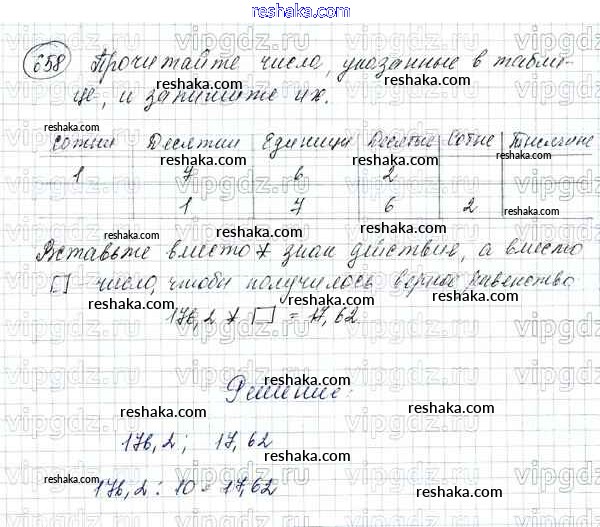 reshaka.com
658 Прочитайте числа, указанные в табли-
це, и запишите их.
Сотни Десятки Единицы Десятые Сотые Тысячные
1 7 6 2
1 7 6 2
Вставьте вместо * знак действие, а вместо
□ число, чтобы получилось верное равенство
176,2 * □ = 17,62.
Решение:
176,2; 17,62
176,2 : 10 = 17,62